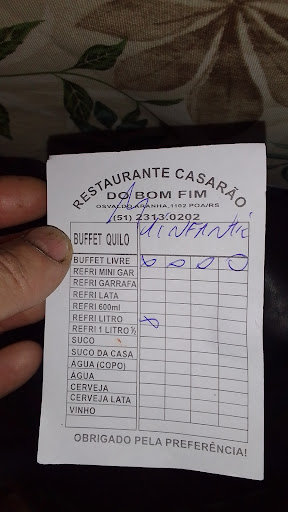 RESTAURANTE CASARÃO
DO BOM FIM
OSVALDO ARANHA,1102 POA/RS
(51) 2313.0202
BUFFET QUILO
INFANTIL
BUFFET LIVRE
REFRI MINI GAR
REFRI GARRAFA
REFRI LATA
REFRI 600ml
REFRI LITRO
REFRI 1 LITRO ½
SUCO
SUCO DA CASA
ÁGUA (COPO)
ÁGUA
CERVEJA
CERVEJA LATA
VINHO
OBRIGADO PELA PREFERÊNCIA!